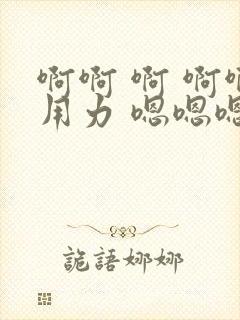 啊啊 啊 啊啊
用力 嗯嗯嗯
詭語娜娜